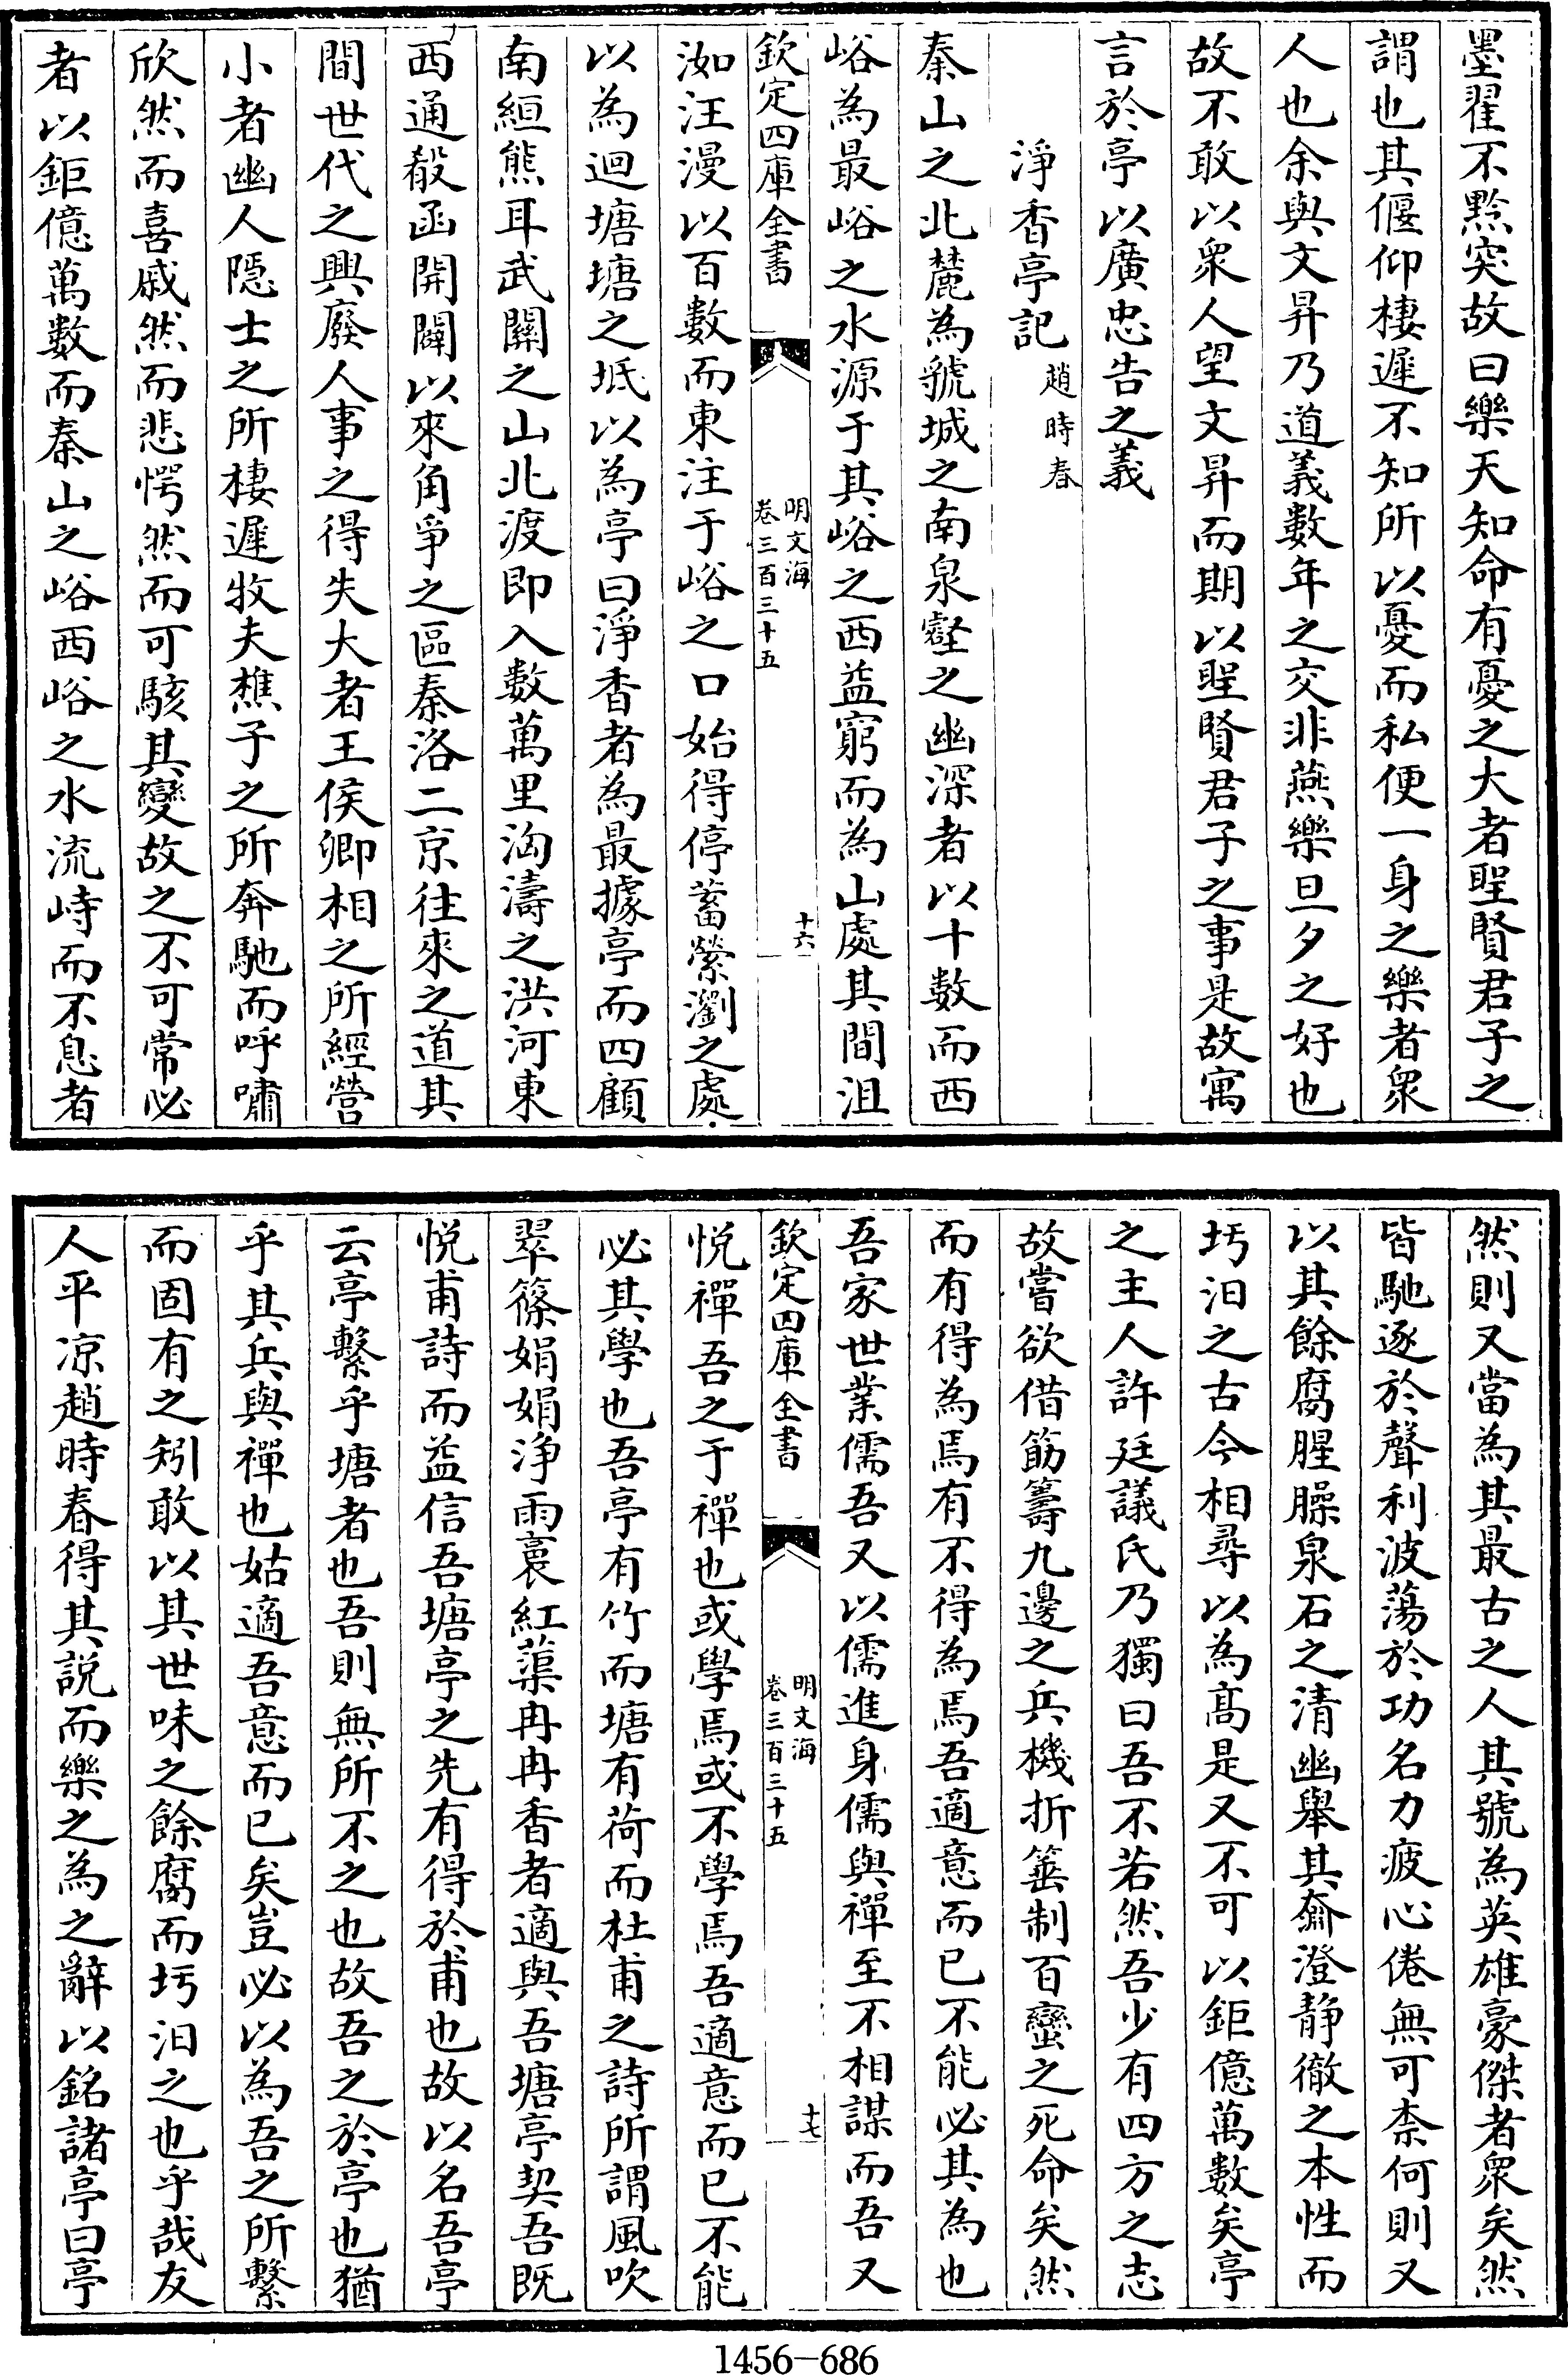 墨翟不黔突故曰樂天知命有憂之大者聖賢君子之
謂也其偃仰棲遲不知所以憂而私便一身之樂者衆
人也余與文昇乃道義數年之交非燕樂旦夕之好也
故不敢以衆人望文昇而期以聖賢君子之事是故寓
言於亭以廣忠告之義
淨香亭記 趙時春
秦山之北麓為虢城之南泉壑之幽深者以十數而西
峪為最峪之水源于其峪之西益窮而為山處其間沮
欽定四庫全書
明文海
卷三百三十五
十六
洳汪漫以百數而東注于峪之口始得停蓄縈瀏之處
以為迴塘塘之坻以為亭曰淨香者為最據亭而四顧
南絙熊耳武關之山北渡即入數萬里洶濤之洪河東
西通殽函開闢以來角爭之區秦洛二京往來之道其
間世代之興廢人事之得失大者王侯卿相之所經營
小者幽人隱士之所棲遲牧夫樵子之所奔馳而呼嘯
欣然而喜戚然而悲愕然而可駭其變故之不可常必
者以鉅億萬數而秦山之峪西峪之水流峙而不息者
然則又當為其最古之人其號為英雄豪傑者衆矣然
皆馳逐於聲利波蕩於功名力疲心倦無可柰何則又
以其餘腐腥臊泉石之清幽舉其齋澄靜徹之本性而
圬汨之古今相尋以為高是又不可以鉅億萬數矣亭
之主人許廷議氏乃獨曰吾不若然吾少有四方之志
故嘗欲借筯籌九邊之兵機折箠制百蠻之死命矣然
而有得為焉有不得為焉吾適意而已不能必其為也
吾家世業儒吾又以儒進身儒與禪至不相謀而吾又
欽定四庫全書
明文海
卷三百三十五
十七
悅禪吾之于禪也或學焉或不學焉吾適意而已不能
必其學也吾亭有竹而塘有荷而杜甫之詩所謂風吹
翠篠娟娟淨雨裛紅蕖冉冉香者適與吾塘亭契吾既
悅甫詩而益信吾塘亭之先有得於甫也故以名吾亭
云亭繫乎塘者也吾則無所不之也故吾之於亭也猶
乎其兵與禪也姑適吾意而已矣豈必以為吾之所繫
而固有之矧敢以其世味之餘腐而圬汨之也乎哉友
人平凉趙時春得其說而樂之為之辭以銘諸亭曰亭
1456-686